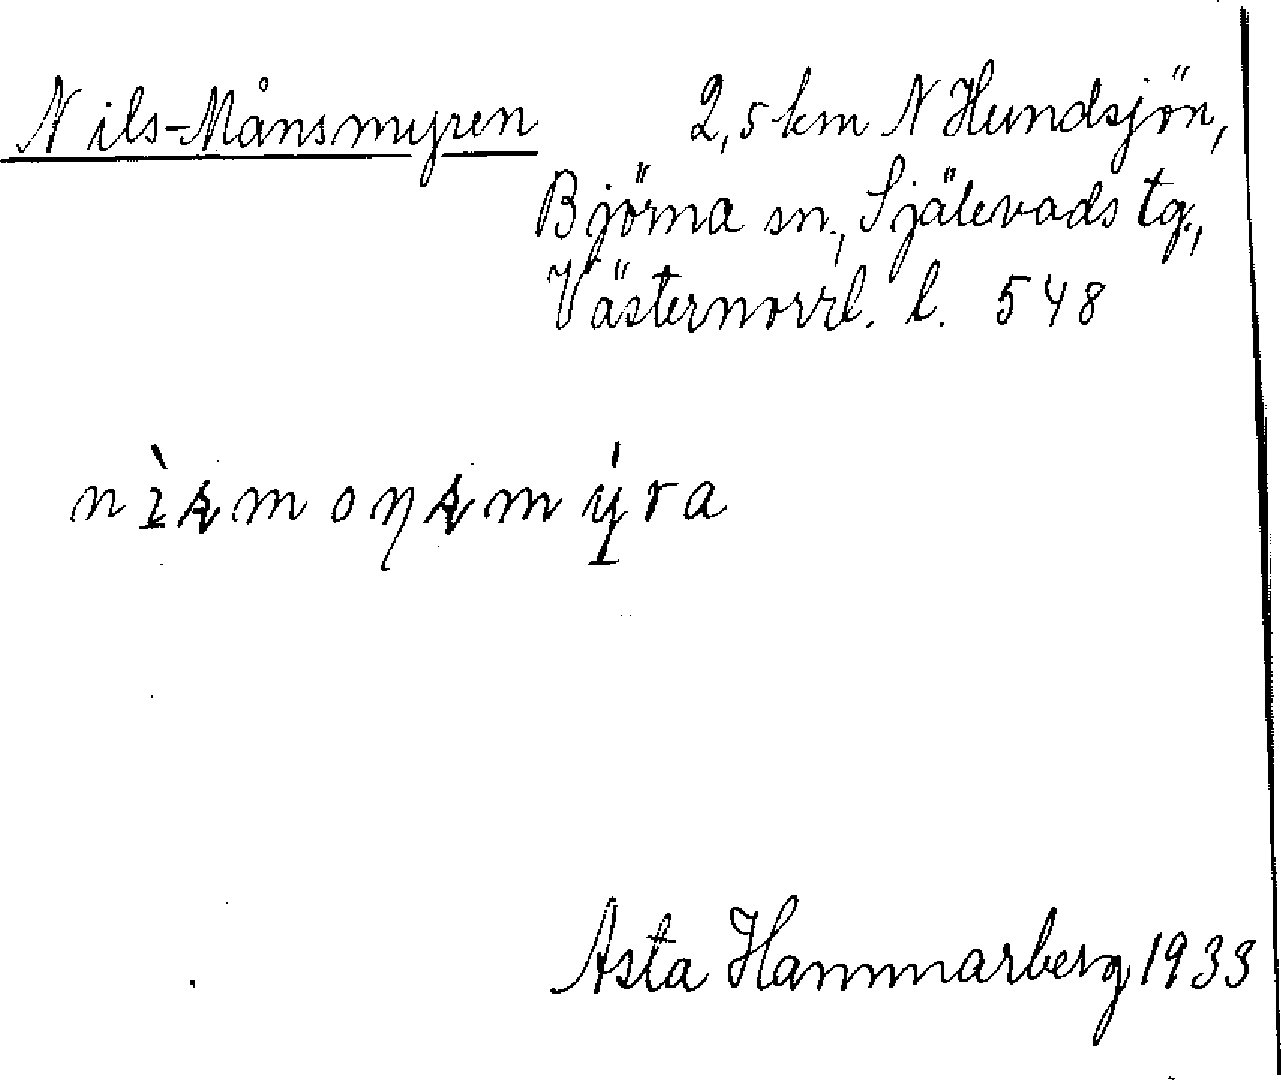 Nils-Månsmyren 2,5 km N Hundsjön,
Björna sn., Själevads tg.,
Västernorrl. l. 548
Asta Hammarberg 1933